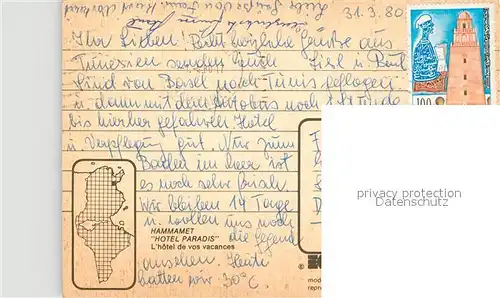 31.3.80
Ihr Lieben! Recht herzliche Grüsse aus
Tunesien senden Euch Lisl u. Paul
Sind von Basel nach Tunis geflogen
u. dann mit dem Autobus noch 1 Stunde
bis hierher gefahren. Hotel
u. Verpflegung gut. Nur zum
Baden im Meer ist
es noch sehr frisch.
Wir bleiben 14 Tage
u. wollen uns noch
die Gegend
ansehen. Heute
hatten wir 30°C.
100
HAMMAMET
"HOTEL PARADIS"
L'hôtel de vos vacances
privacy protection
Datenschutz